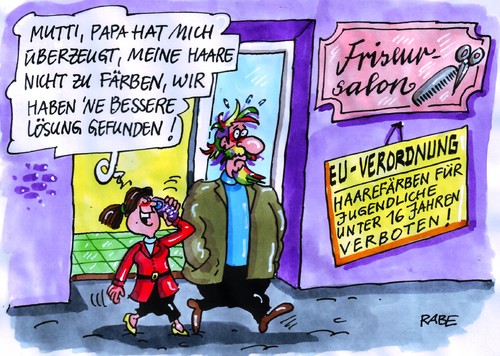 MUTTI, PAPA HAT MICH
ÜBERZEUGT, MEINE HAARE
NICHT ZU FÄRBEN, WIR
HABEN 'NE BESSERE
LÖSUNG GEFUNDEN!
Friseur-
salon
EU-VERORDNUNG
HAAREFÄRBEN FÜR
JUGENDLICHE
UNTER 16 JAHREN
VERBOTEN!
RABE